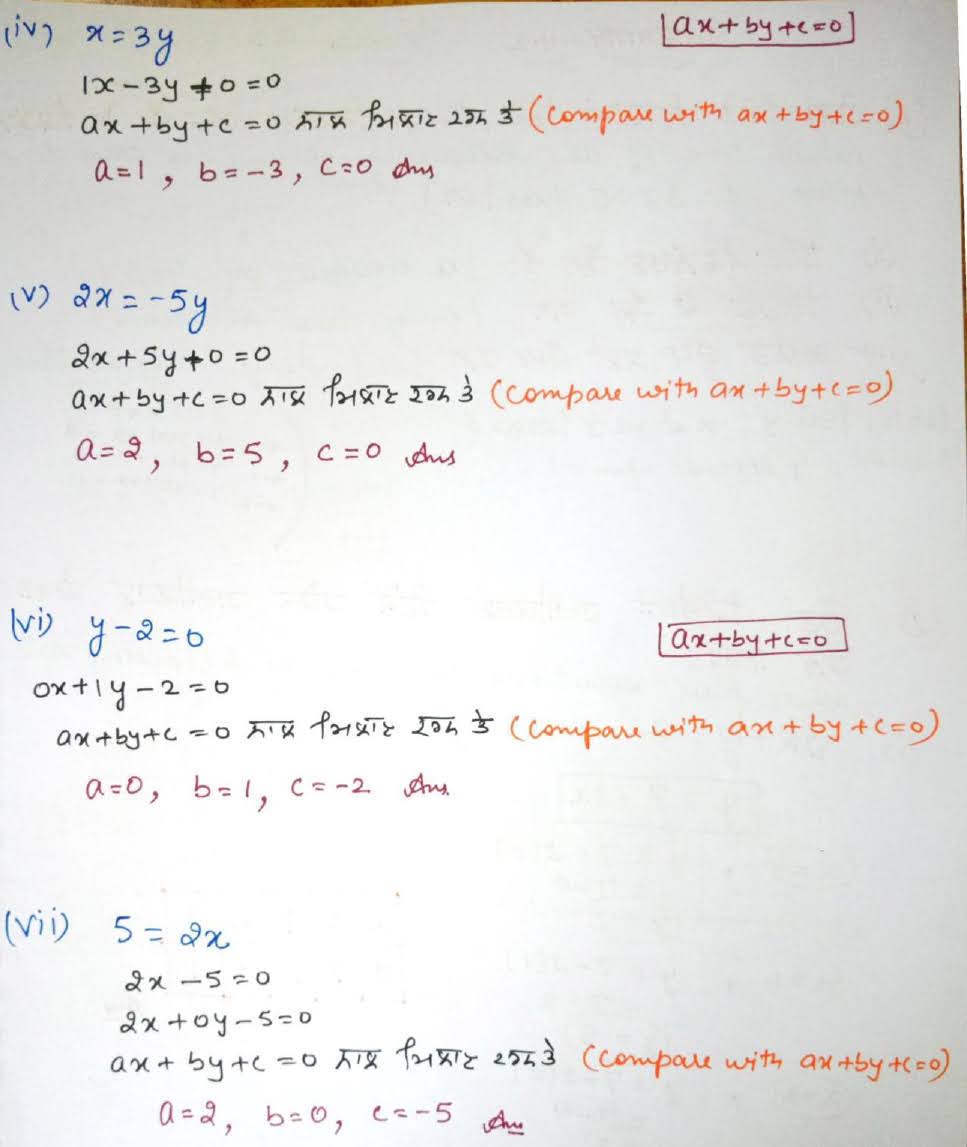 (iv) x = 3y
ax + by + c = 0
1x - 3y + 0 = 0
ax + by + c = 0 ਨਾਲ ਮਿਲਾਣ ਕਰਨ ਤੇ (Compare with ax + by + c = 0)
a = 1 , b = -3 , c = 0 Ans
(v) 2x = -5y
2x + 5y + 0 = 0
ax + by + c = 0 ਨਾਲ ਮਿਲਾਣ ਕਰਨ ਤੇ (Compare with ax + by + c = 0)
a = 2 , b = 5 , c = 0 Ans
(vi) y - 2 = 0
ax + by + c = 0
0x + 1y - 2 = 0
ax + by + c = 0 ਨਾਲ ਮਿਲਾਣ ਕਰਨ ਤੇ (Compare with ax + by + c = 0)
a = 0, b = 1, c = -2 Ans.
(vii) 5 = 2x
2x - 5 = 0
2x + 0y - 5 = 0
ax + by + c = 0 ਨਾਲ ਮਿਲਾਣ ਕਰਨ ਤੇ (Compare with ax + by + c = 0)
a = 2, b = 0, c = -5 Ans